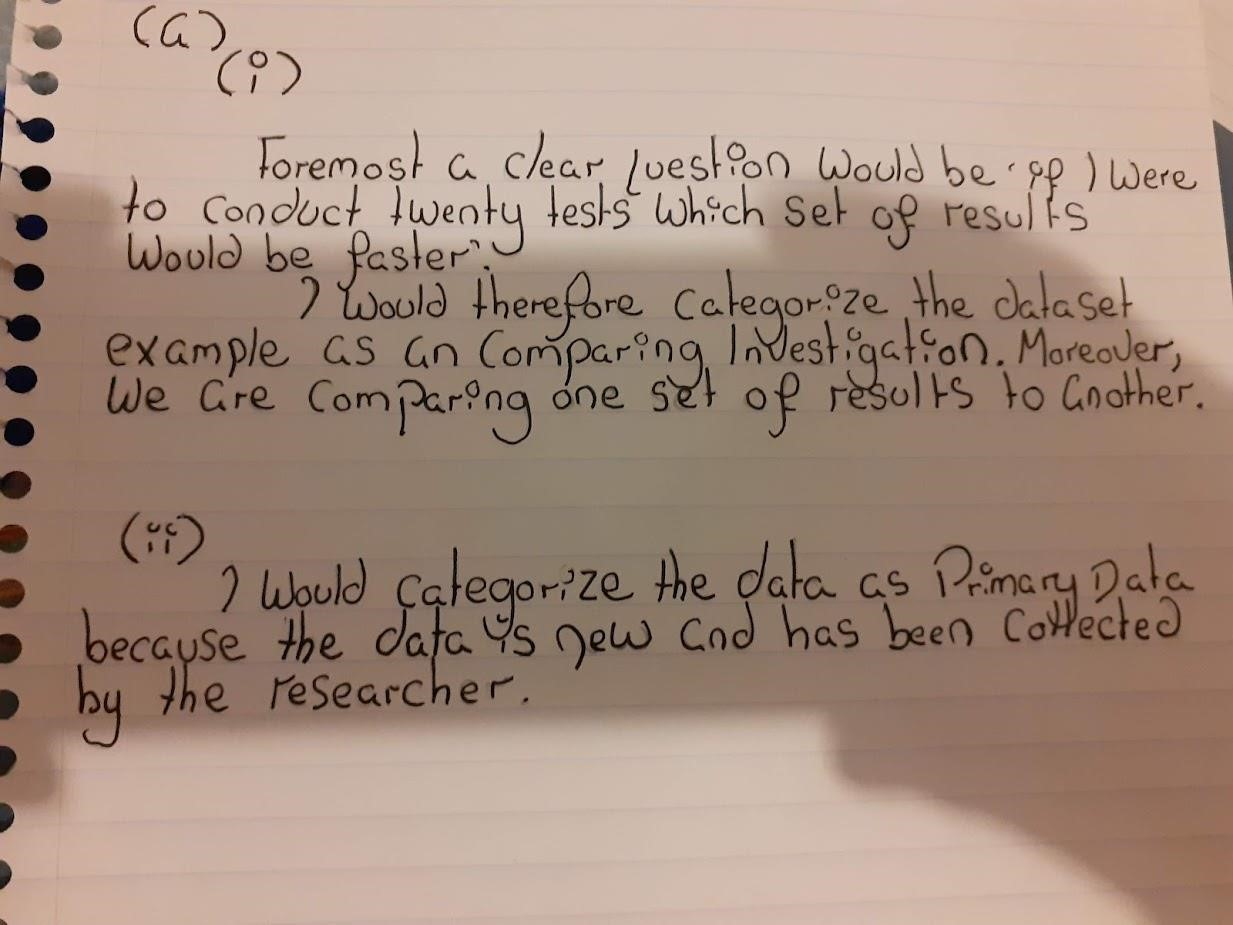 (a)
(i)
Foremost a clear question would be 'if I were
to conduct twenty tests which set of results
would be faster'.
I would therefore categorize the dataset
example as an Comparing Investigation. Moreover,
we are comparing one set of results to another.
(ii)
I would categorize the data as Primary Data
because the data is new and has been collected
by the researcher.